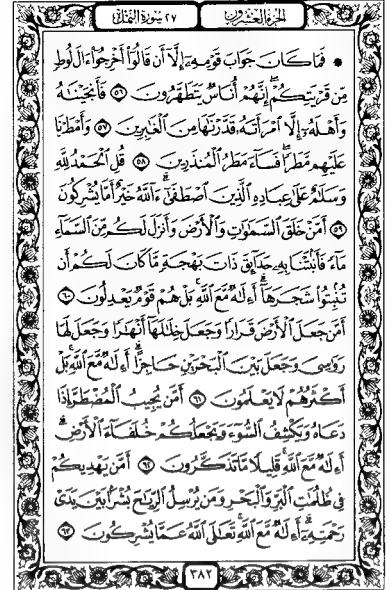 الجزء العشرون
٢٧ سورة النمل
فَمَا كَانَ جَوَابَ قَوْمِهِۦٓ إِلَّآ أَن قَالُوٓا۟ أَخْرِجُوٓا۟ ءَالَ لُوطٍ
مِّن قَرْيَتِكُمْ ۖ إِنَّهُمْ أُنَاسٌ يَتَطَهَّرُونَ ٥٦ فَأَنجَيْنَـٰهُ
وَأَهْلَهُۥٓ إِلَّا ٱمْرَأَتَهُۥ قَدَّرْنَـٰهَا مِنَ ٱلْغَـٰبِرِينَ ٥٧ وَأَمْطَرْنَا
عَلَيْهِم مَّطَرًا ۖ فَسَآءَ مَطَرُ ٱلْمُنذَرِينَ ٥٨ قُلِ ٱلْحَمْدُ لِلَّهِ
وَسَلَـٰمٌ عَلَىٰ عِبَادِهِ ٱلَّذِينَ ٱصْطَفَىٰٓ ۗ ءَآللَّهُ خَيْرٌ أَمَّا يُشْرِكُونَ
٥٩ أَمَّنْ خَلَقَ ٱلسَّمَـٰوَٰتِ وَٱلْأَرْضَ وَأَنزَلَ لَكُم مِّنَ ٱلسَّمَآءِ
مَآءً فَأَنۢبَتْنَا بِهِۦ حَدَآئِقَ ذَاتَ بَهْجَةٍ مَّا كَانَ لَكُمْ أَن
تُنۢبِتُوا۟ شَجَرَهَآ ۗ أَءِلَـٰهٌ مَّعَ ٱللَّهِ ۚ بَلْ هُمْ قَوْمٌ يَعْدِلُونَ ٦٠
أَمَّن جَعَلَ ٱلْأَرْضَ قَرَارًا وَجَعَلَ خِلَـٰلَهَآ أَنْهَـٰرًا وَجَعَلَ لَهَا
رَوَٰسِىَ وَجَعَلَ بَيْنَ ٱلْبَحْرَيْنِ حَاجِزًا ۗ أَءِلَـٰهٌ مَّعَ ٱللَّهِ ۚ بَلْ
أَكْثَرُهُمْ لَا يَعْلَمُونَ ٦١ أَمَّن يُجِيبُ ٱلْمُضْطَرَّ إِذَا
دَعَاهُ وَيَكْشِفُ ٱلسُّوٓءَ وَيَجْعَلُكُمْ خُلَفَآءَ ٱلْأَرْضِ ۗ
أَءِلَـٰهٌ مَّعَ ٱللَّهِ ۚ قَلِيلًا مَّا تَذَكَّرُونَ ٦٢ أَمَّن يَهْدِيكُمْ
فِى ظُلُمَـٰتِ ٱلْبَرِّ وَٱلْبَحْرِ وَمَن يُرْسِلُ ٱلرِّيَـٰحَ بُشْرًۢا بَيْنَ يَدَىْ
رَحْمَتِهِۦٓ ۗ أَءِلَـٰهٌ مَّعَ ٱللَّهِ ۚ تَعَـٰلَى ٱللَّهُ عَمَّا يُشْرِكُونَ ٦٣
٣٨٢